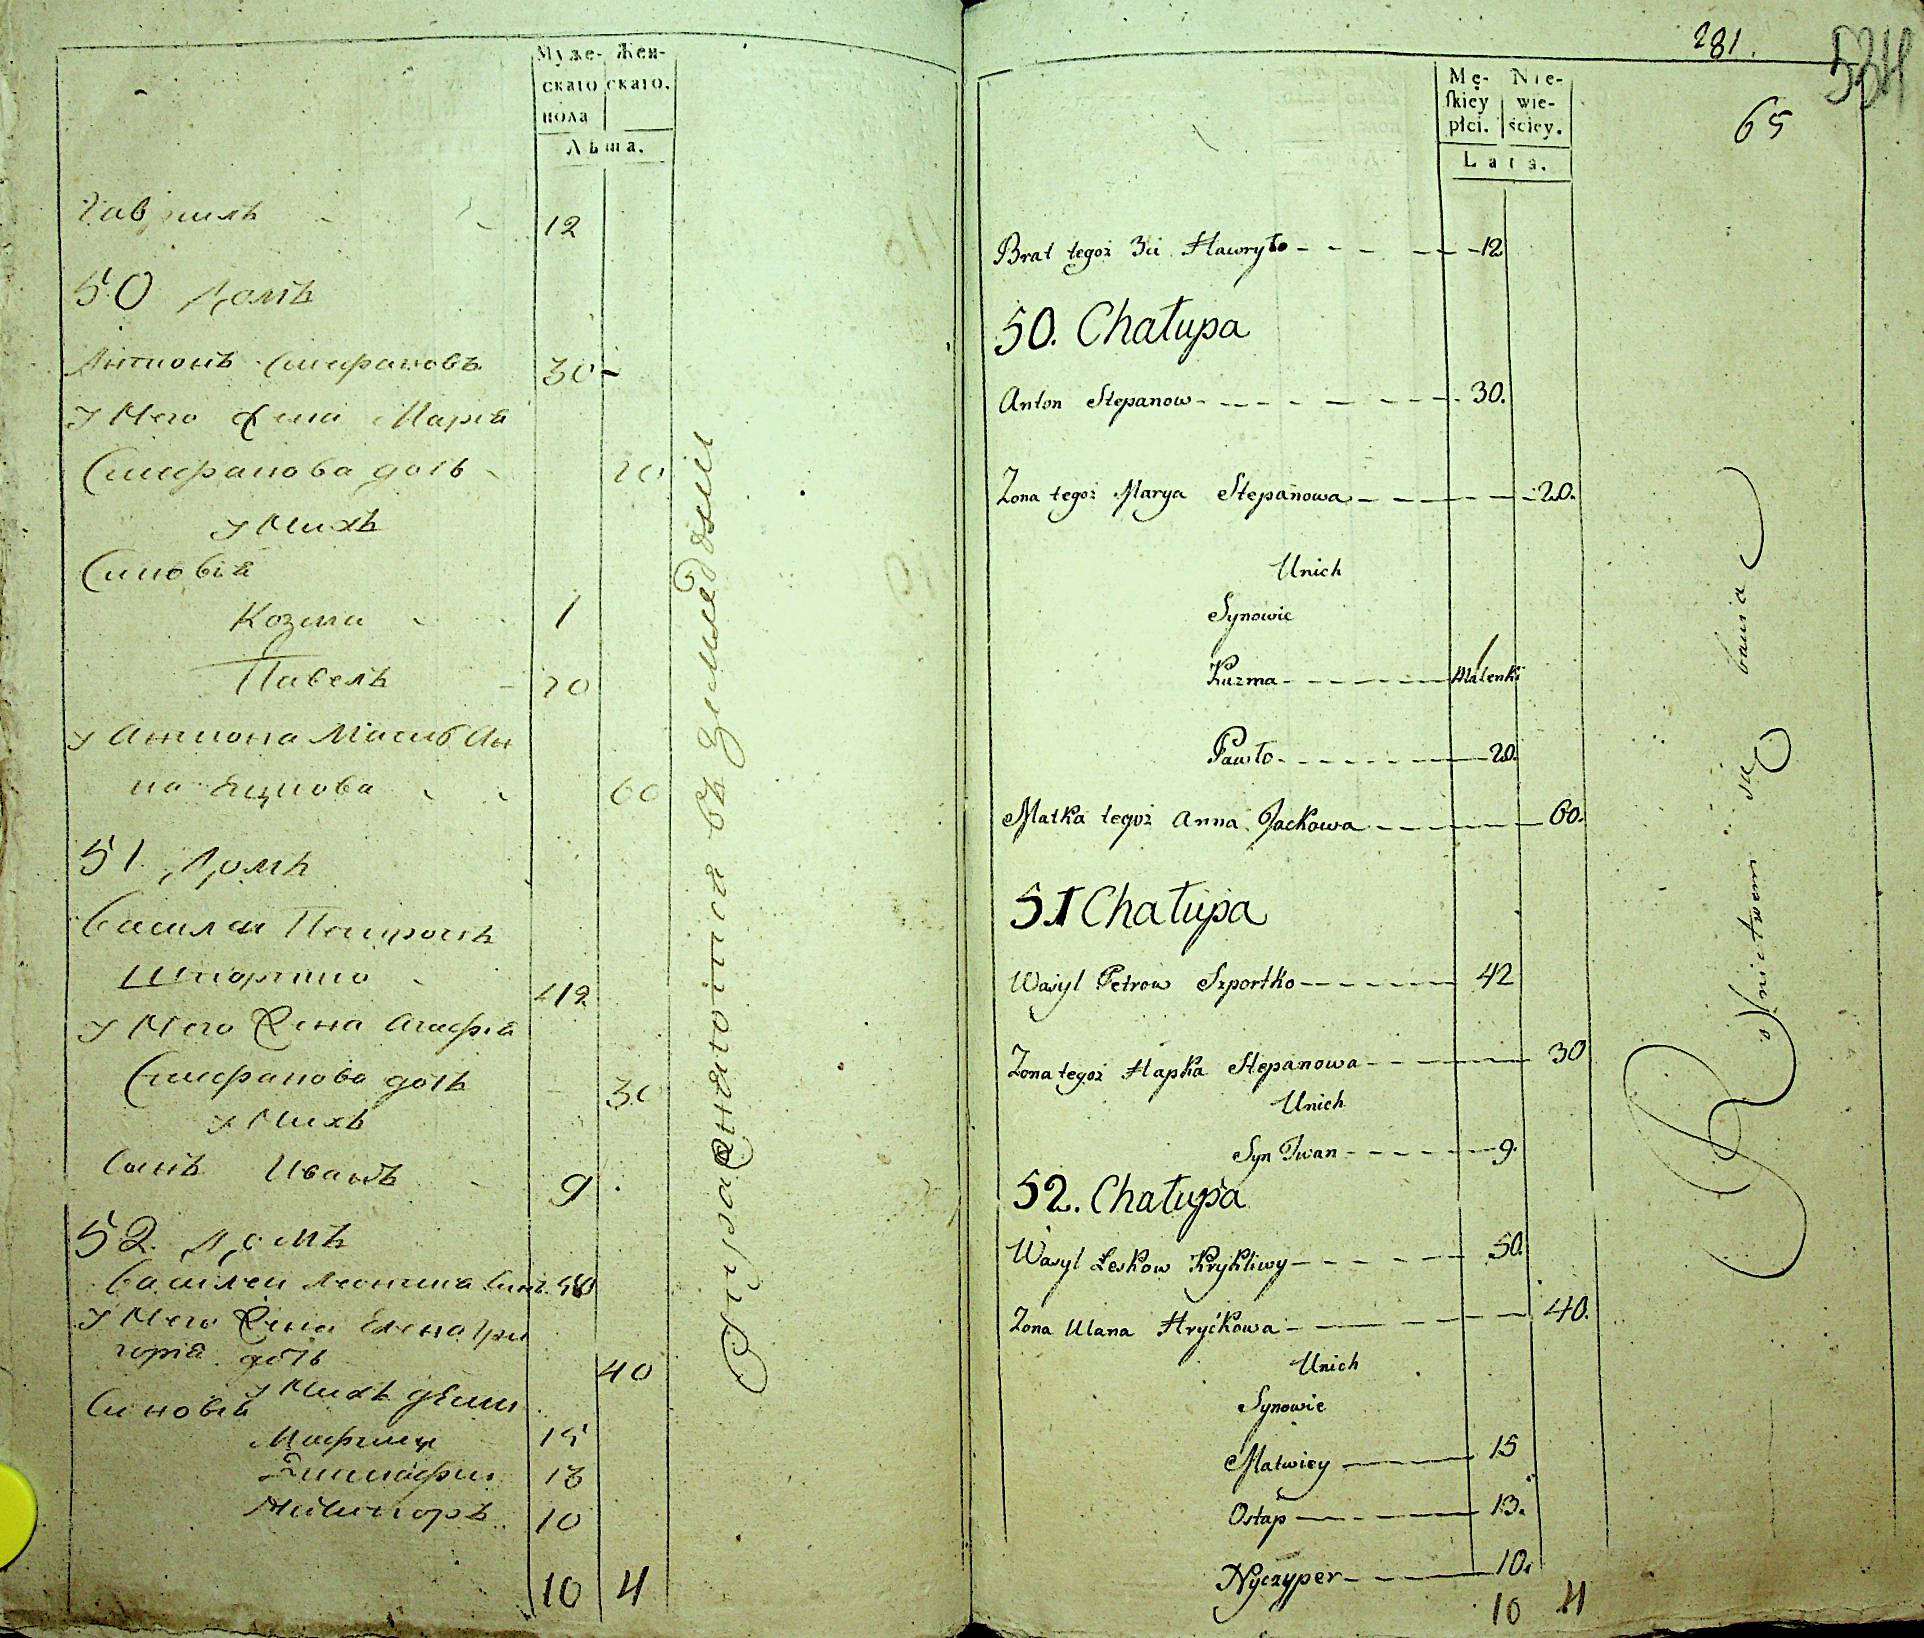 Муже- Жен-
скаго скаго.
пола
Лѣта.
Гаврилъ 12
50 Домъ
Антонъ Стефановъ 30
У Него Жена Марія
Стефанова дочь 20
У Нихъ
Синовія
Козма 1
Павелъ 20
У Антона Матъ Ан
на Яцкова 60
51 Домъ
Василій Петровъ
Шпортко 42
У Него Жена Агафія
Стефанова дочь 30
У Нихъ
Синъ Иванъ 9
52. Домъ
Василей 50
У Него Жена Елена Гри
горія дочь 40
У Нихъ дѣти
Синовія
Матфей 15
13
Никипоръ 10
10 4
281.
534
65
Mę- Nie-
skiey wie-
płci. ściey.
Lata.
Brat tegoż 3ci Hawryło 12
50. Chałupa
Anton Stepanow 30.
Zona tegoż Marya Stepanowa 20.
Unich
Synowie
Kuzma 1 Małenki
Pawło 20.
Matka tegoż Anna Jackowa 60.
51 Chałupa
Wasyl Petrow Szportko 42
Zona tegoż Hapka Stepanowa 30
Unich
Syn Iwan 9.
52. Chałupa
Wasyl Leskow Krykliwy 50.
Zona Ulana Hryćkowa 40.
Unich
Synowie
Matwiey 15
Ostap 13.
Nyczyper 10.
10 4
Rolnictwem się bawią